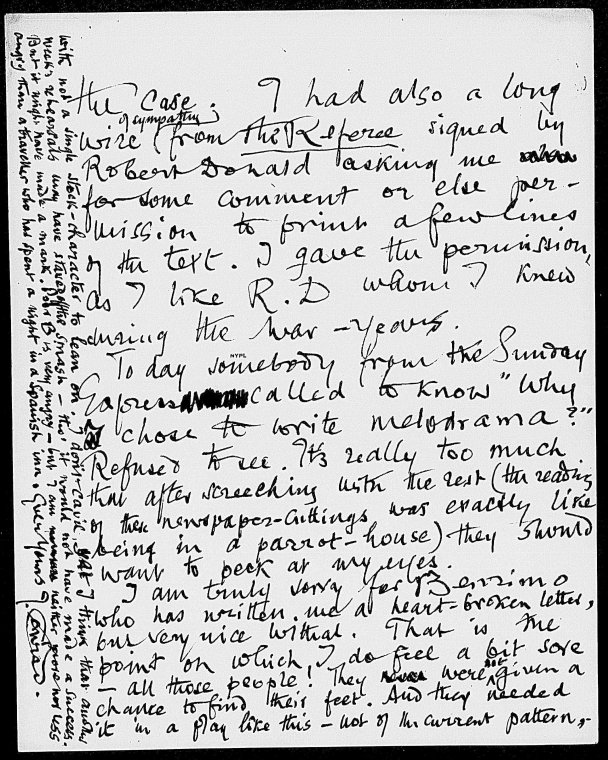 the case. I had also a long
wire (of sympathy) from the Referee signed by
Robert Donald asking me
for some comment or else per-
mission to print a few lines
of the text. I gave the permission,
as I like R. D whom I knew
during the war-years.
NYPL
To day somebody from the Sunday
Express called to know "why
I chose to write melodrama?"
Refused to see. It's really too much
that after screeching with the rest (the reading
of these newspaper-cuttings was exactly like
being in a parrot-house) they should
want to peck at my eyes.
I am truly sorry for Benrimo
who has written me a heart-broken letter,
but very nice withal. That is the
point on which I do feel a bit sore
— all those people! They were not given a
chance to find their feet. And they needed
it in a play like this — not of the current pattern,
with not a single stock-character to lean on. I don't cavil, yet I think that another
week's rehearsals may have staved off the smash — tho' it would not have made a success.
But it might have made a mark. Poor B is very angry — but I am neither more nor less
angry than a traveller who has spent a night in a Spanish inn. Ever Yours
J. Conrad.